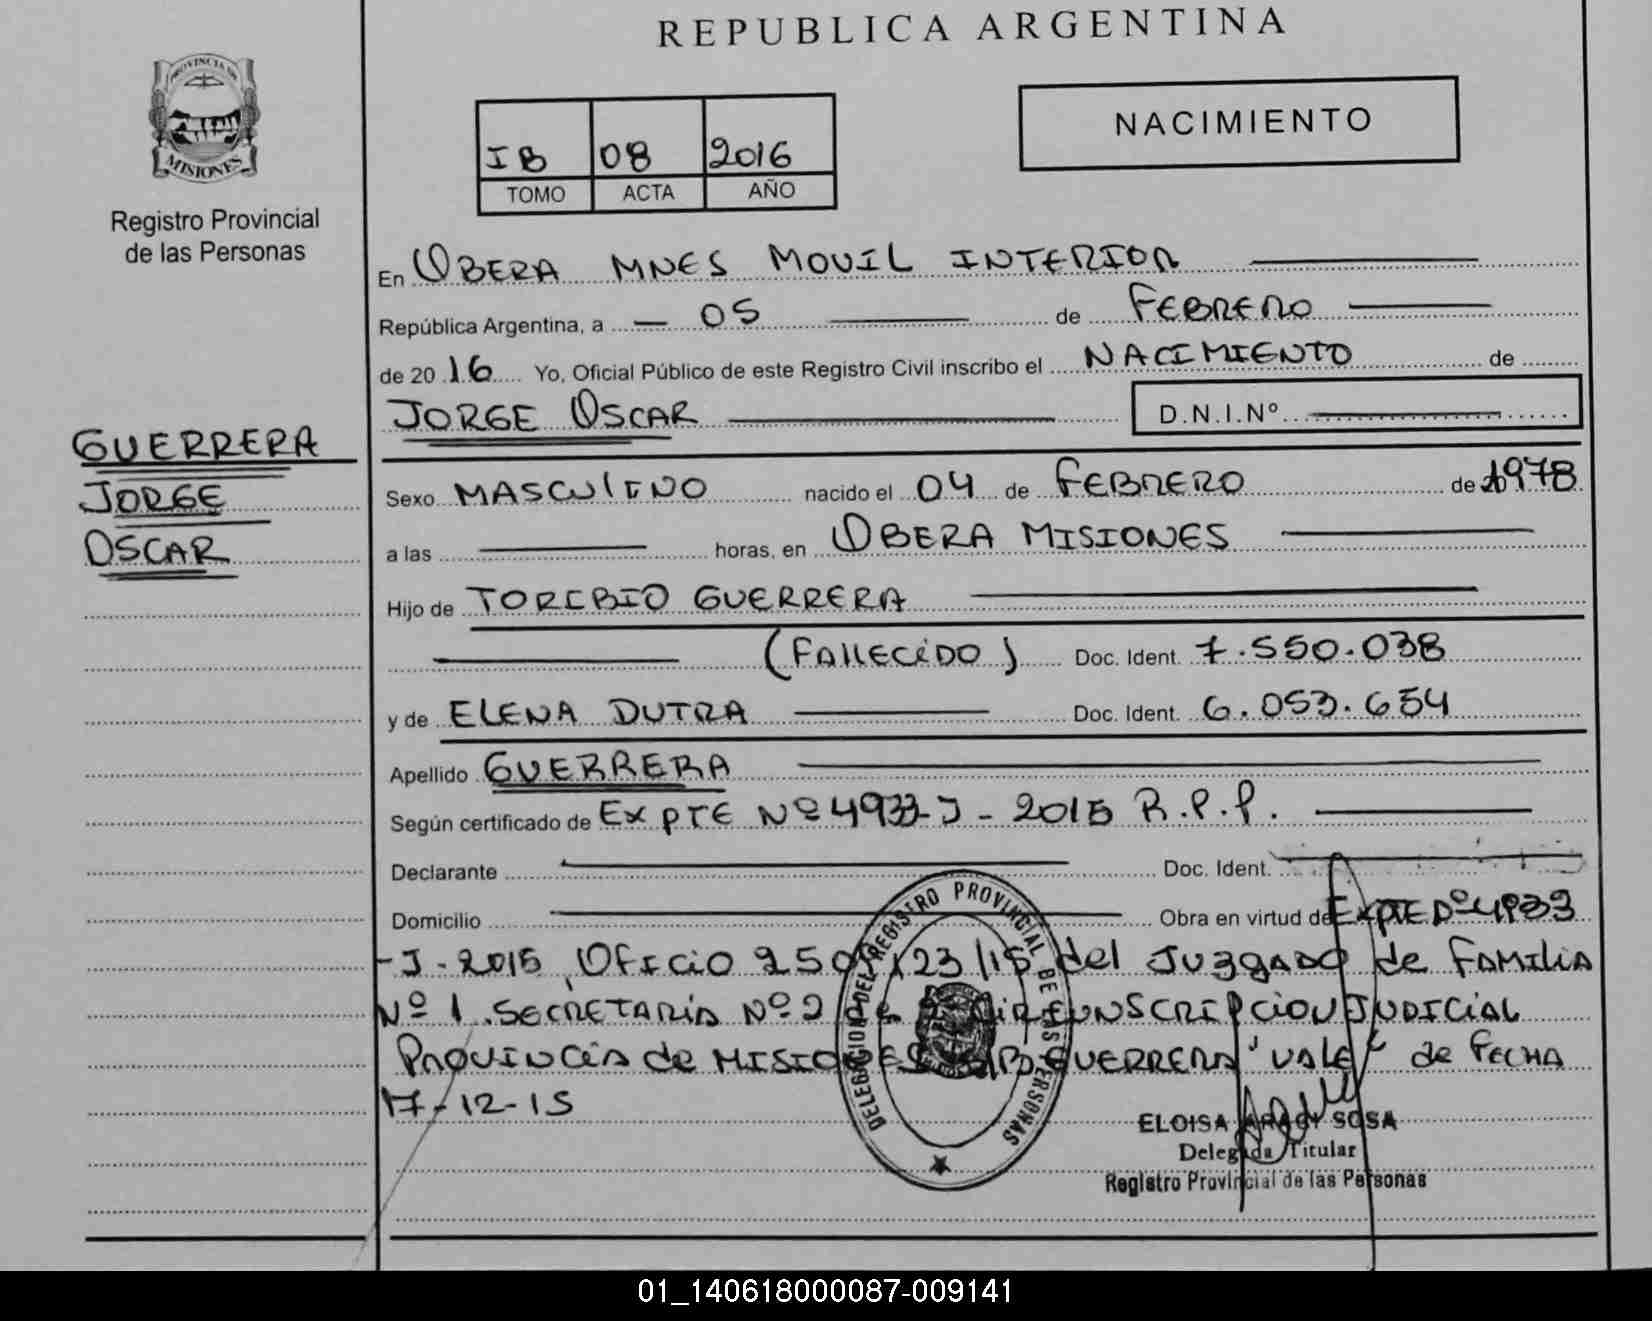 REPUBLICA ARGENTINA
PROVINCIA DE
MISIONES
Registro Provincial
de las Personas
NACIMIENTO
IB 08 2016
TOMO ACTA AÑO
En OBERA MNES MOVIL INTERIOR
República Argentina, a 05 de FEBRERO
de 2016 Yo, Oficial Público de este Registro Civil inscribo el NACIMIENTO de
JORGE OSCAR D.N.I.Nº
GUERRERA
JORGE
OSCAR
Sexo MASCULINO nacido el 04 de FEBRERO de 1978
a las horas, en OBERA MISIONES
Hijo de TORIBIO GUERRERA
(FALLECIDO) Doc. Ident. 7.550.038
y de ELENA DUTRA Doc. Ident. 6.053.654
Apellido GUERRERA
Según certificado de EXPTE Nº 4933-J-2015 R.P.P.
Declarante Doc. Ident.
Domicilio Obra en virtud de EXPTE Nº 4933
-J-2015, OFICIO del JUZGADO de FAMILIA
Nº 1 SECRETARIA Nº 2 CIRCUNSCRIPCION JUDICIAL
PROVINCIA de MISIONES GUERRERA "VALE" de FECHA
17-12-15
DELEGACION DEL REGISTRO PROVINCIAL DE LAS PERSONAS
ELOISA SOSA
Delegada Titular
Registro Provincial de las Personas
01_140618000087-009141